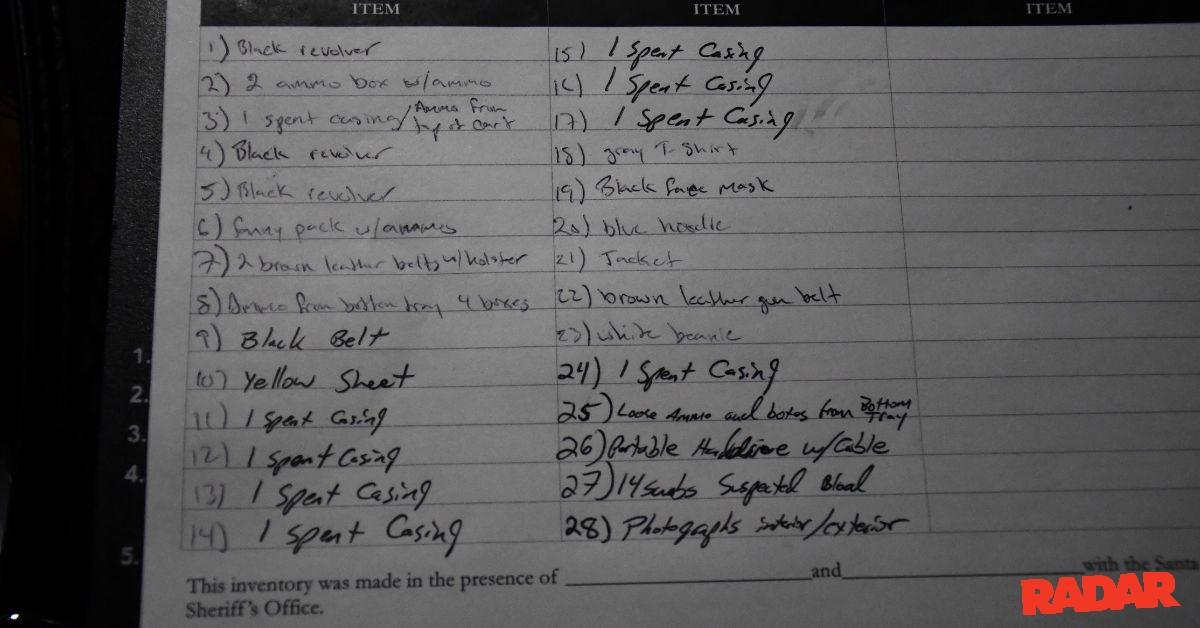 ITEM
ITEM
ITEM
1) Black revolver
2) 2 ammo box w/ammo
3) 1 spent casing/Ammo from top of cart
4) Black revolver
5) Black revolver
6) fanny pack w/ammo
7) 2 brown leather belts w/holster
8) Ammo from bottom tray 4 boxes
9) Black Belt
10) Yellow Sheet
11) 1 Spent Casing
12) 1 Spent Casing
13) 1 Spent Casing
14) 1 Spent Casing
15) 1 Spent Casing
16) 1 Spent Casing
17) 1 Spent Casing
18) gray T-Shirt
19) Black face mask
20) blue hoodie
21) Jacket
22) brown leather gun belt
23) white beanie
24) 1 Spent Casing
25) Loose Ammo and boxes from Bottom Tray
26) Portable Harddrive w/Cable
27) 14 swabs Suspected Blood
28) Photographs interior/exterior
1.
2.
3.
4.
5.
This inventory was made in the presence of and with the Santa
Sheriff's Office.
RADAR